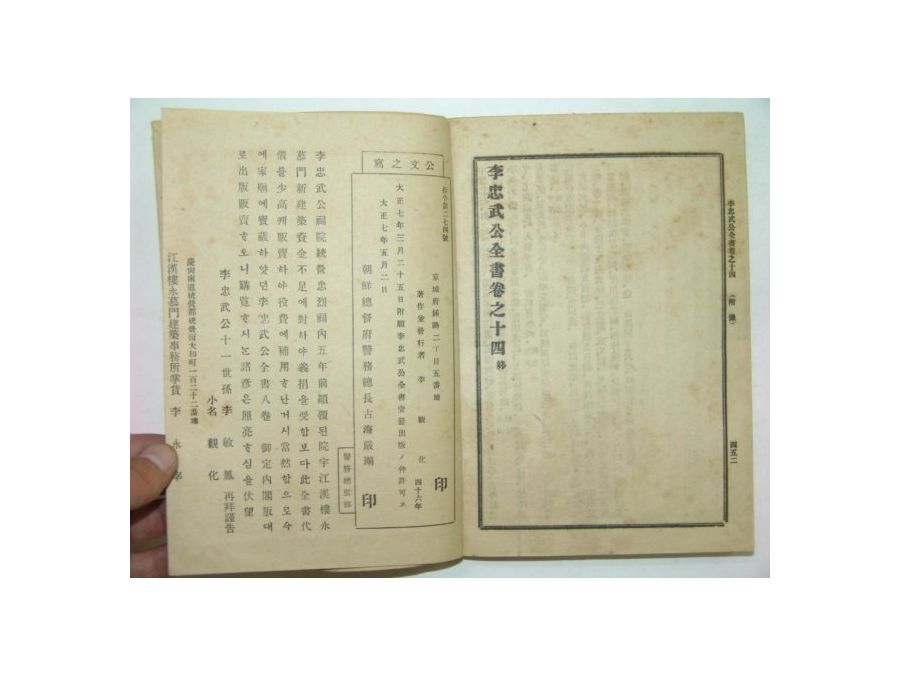 李忠武公全書卷之十四 (附錄)
四五二
李忠武公全書卷之十四終
公文之寫
指令第二七四號
京城府 路二丁目五番地
著作兼發行者 李觀化
四十六年
印
大正七年三月二十五日附願李忠武公全書壹 出版ノ件許可ス
大正七年五月二日
朝鮮總督府警務總長古海嚴潮 印
警務總監部
李忠武公祠院統營忠烈祠內五年前顚覆된院宇江漢樓永
慕門新建築資金不足에對하야義捐을受할보다此全書代
價를少高케販賣하야役費에補用하난거시當然함으로今
에家廟에寶藏하얏던李忠武公全書八卷 御定內閣版대
로出版販賣하오니購覽하시는諸彦은照亮하심을伏望
李忠武公十一世孫 李敏鳳 再拜謹告
小名 觀化
慶尙南道統營郡統營面大和町一百二十二番地
江漢樓永慕門建築事務所掌貨 李永